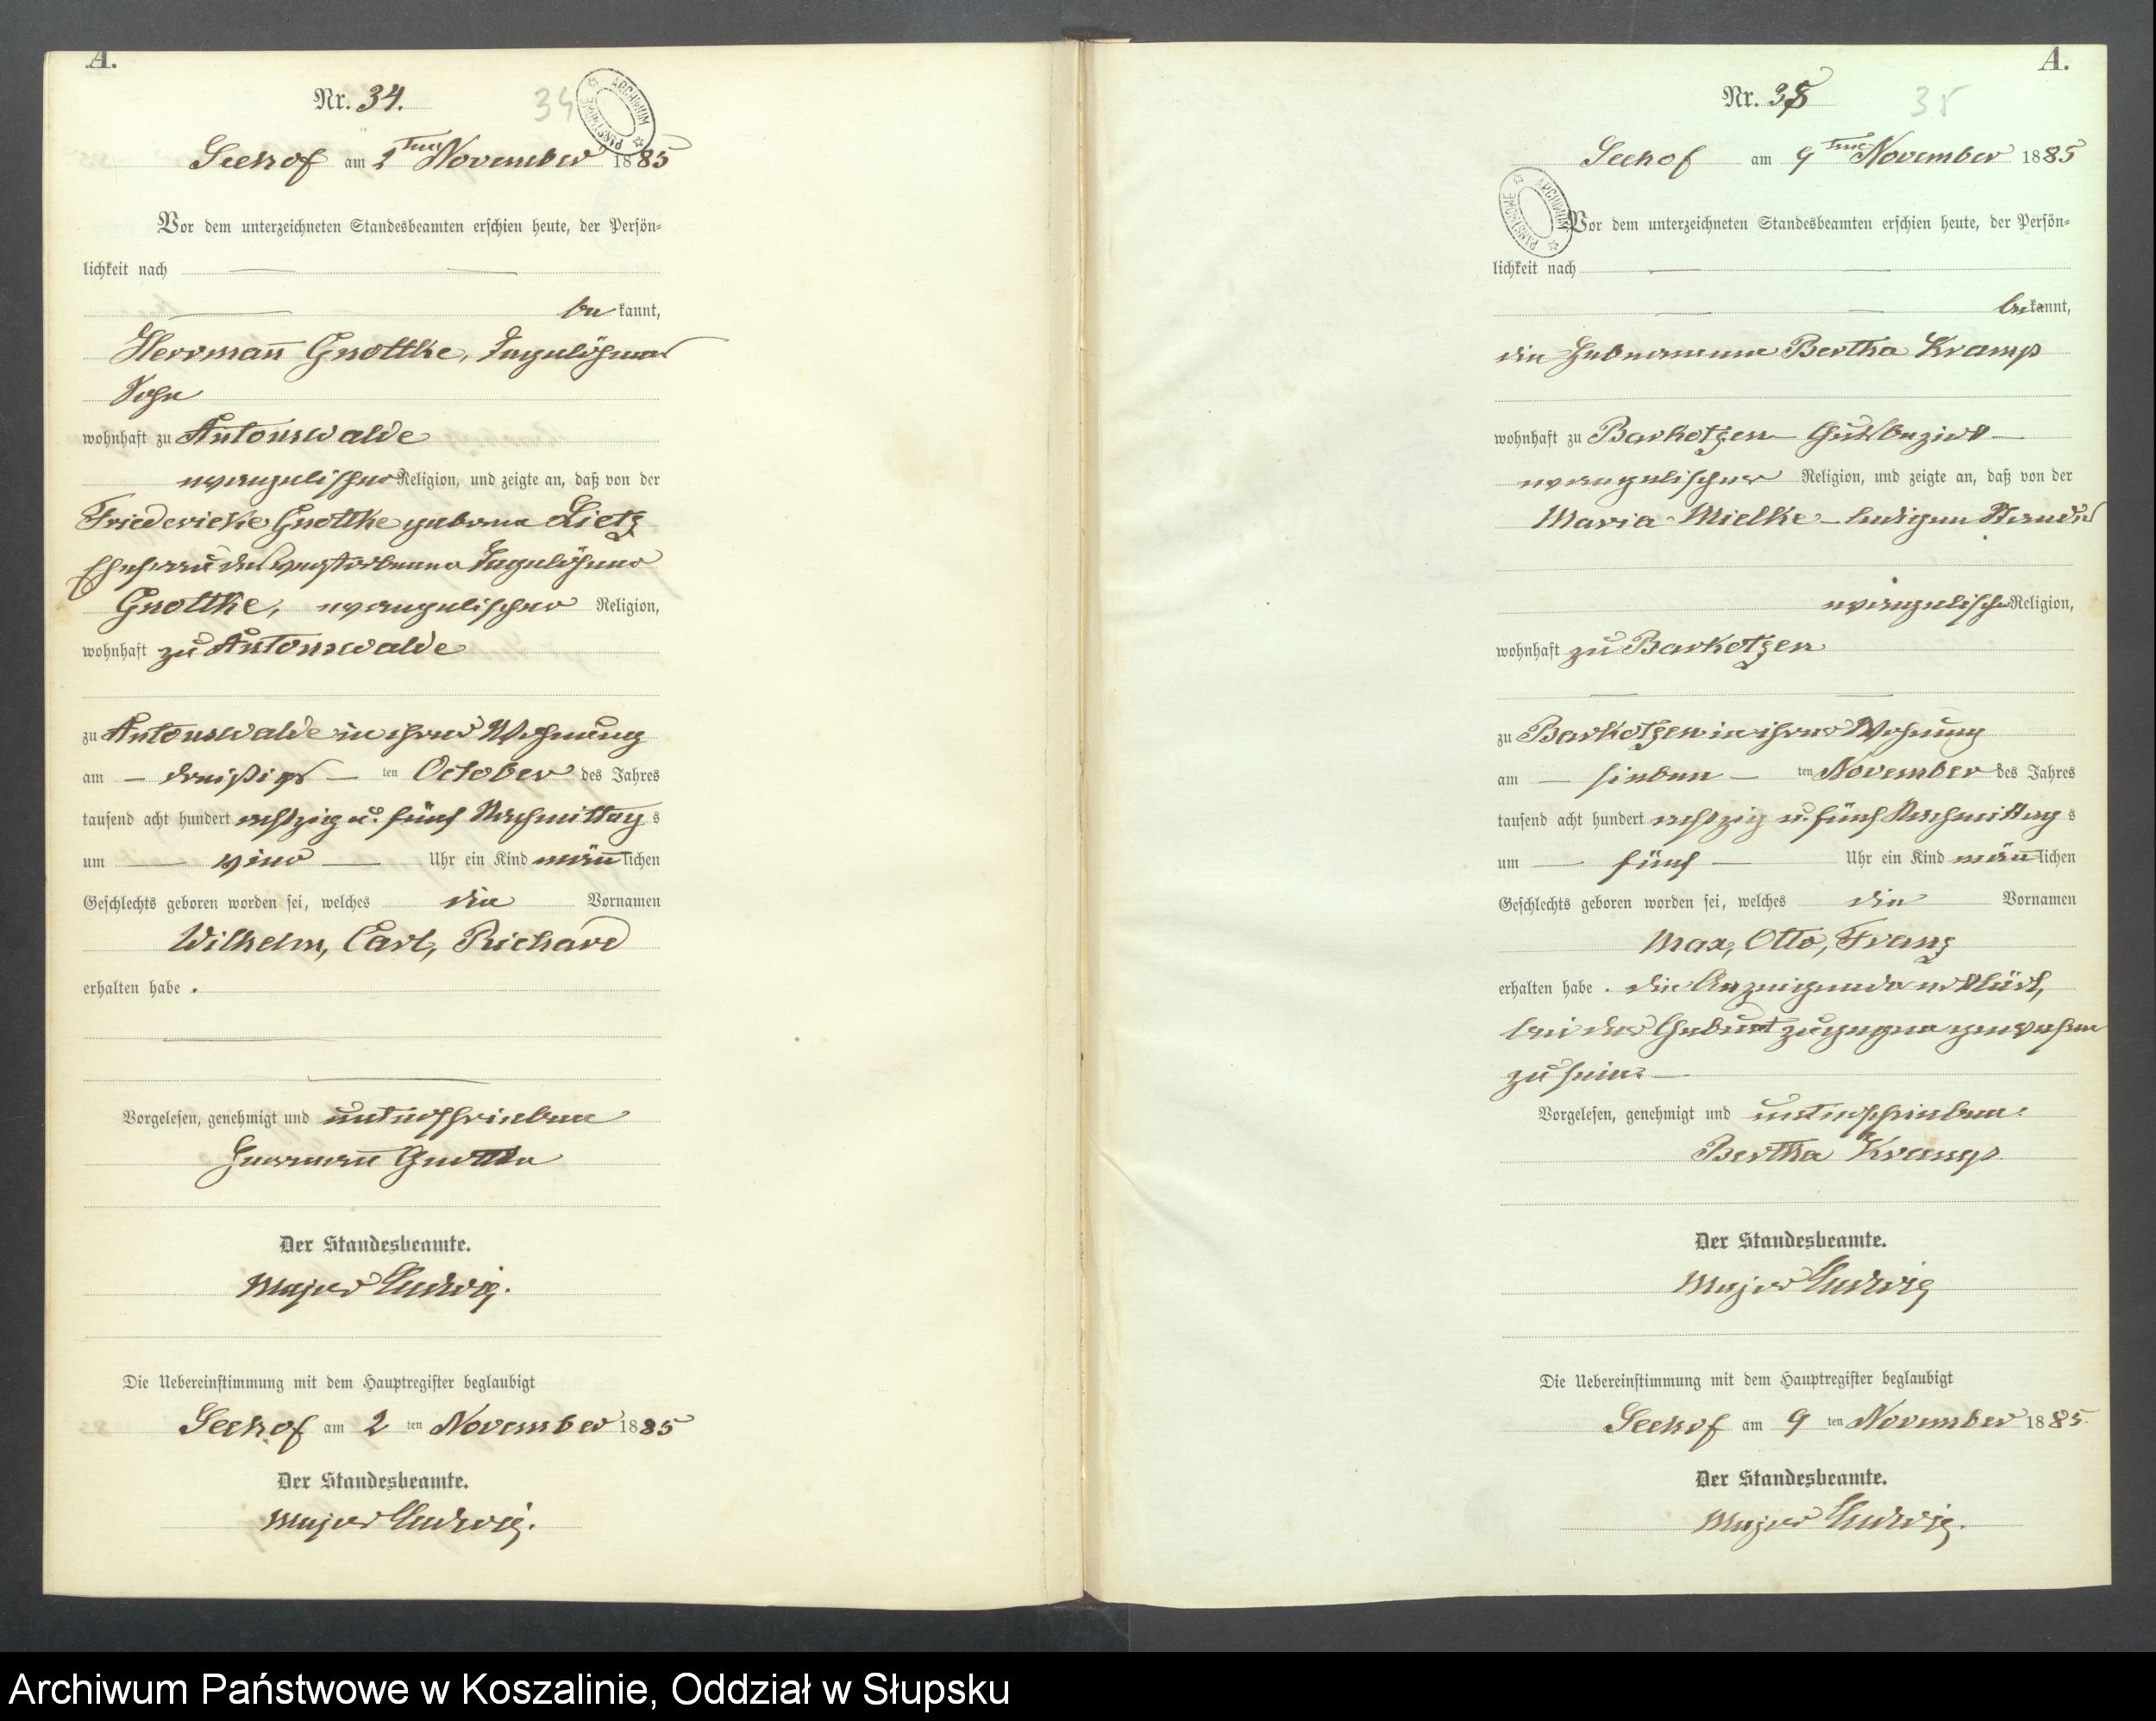 A.
Nr. 34.
34
ARCHIWUM PAŃSTWOWE
Seehof am 2ten November 1885
Vor dem unterzeichneten Standesbeamten erschien heute, der Persön-
lichkeit nach
bekannt,
Herrmann Gnottke, Tagelöhner
Sohn
wohnhaft zu Antonswalde
evangelischer Religion, und zeigte an, daß von der
Friedericke Gnottke geborne Lietz
Ehefrau des verstorbenen Tagelöhner
Gnottke, evangelischer Religion,
wohnhaft zu Antonswalde
zu Antonswalde in ihrer Wohnung
am – dreißigs – ten October des Jahres
tausend acht hundert achtzig u. fünf Nachmittags
um Uhr ein Kind männlichen
Geschlechts geboren worden sei, welches die Vornamen
Wilhelm, Carl, Richard
erhalten habe .
Vorgelesen, genehmigt und unterschrieben
Herrmann Gnottke
Der Standesbeamte.
Major Ludwig.
Die Uebereinstimmung mit dem Hauptregister beglaubigt
Seehof am 2 ten November 1885
Der Standesbeamte.
Major Ludwig.
A.
Nr. 35
35
ARCHIWUM PAŃSTWOWE
Seehof am 9ten November 1885
Vor dem unterzeichneten Standesbeamten erschien heute, der Persön-
lichkeit nach
bekannt,
die Hebamme Bertha Kramp
wohnhaft zu Barkotzen – Gutsbezirk –
evangelischer Religion, und zeigte an, daß von der
Maria Mielke – ledigen Standes
evangelischer Religion,
wohnhaft zu Barkotzen
zu Barkotzen in ihrer Wohnung
am – sieben – ten November des Jahres
tausend acht hundert achtzig u. fünf Nachmittags
um – fünf – Uhr ein Kind männlichen
Geschlechts geboren worden sei, welches die Vornamen
Max, Otto, Franz
erhalten habe . die Anzeigende erklärt,
bei der Geburt zugegen gewesen
zu sein. –
Vorgelesen, genehmigt und unterschrieben.
Bertha Kramp
Der Standesbeamte.
Major Ludwig
Die Uebereinstimmung mit dem Hauptregister beglaubigt
Seehof am 9 ten November 1885.
Der Standesbeamte.
Major Ludwig.
Archiwum Państwowe w Koszalinie, Oddział w Słupsku